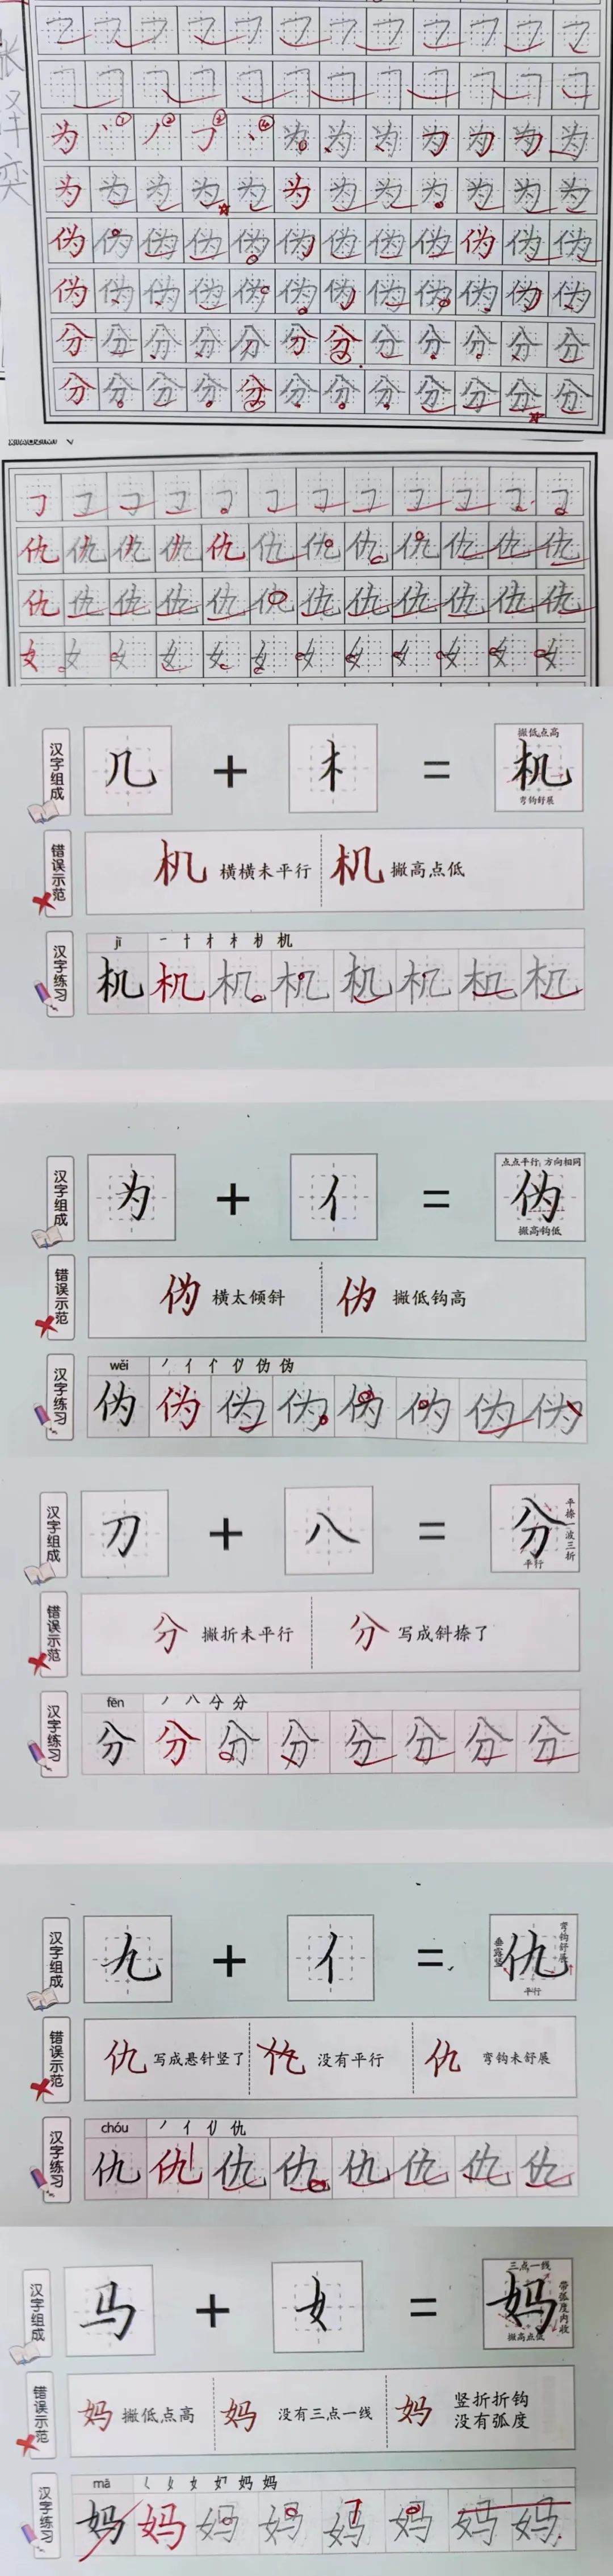 为 ① ② ③ ④ 为 为 为 为 为 为 为
为 为 为 为 为 为 为 为 为 为 为 为
伪 伪 伪 伪 伪 伪 伪 伪 伪 伪 伪 伪
伪 伪 伪 伪 伪 伪 伪 伪 伪 伪 伪 伪
分 分 分 分 分 分 分 分 分 分 分 分
分 分 分 分 分 分 分 分 分 分 分 分
仇 仇 仇 仇 仇 仇 仇 仇 仇 仇 仇 仇
仇 仇 仇 仇 仇 仇 仇 仇 仇 仇 仇 仇
女 女 女 女 女 女 女 女 女 女 女 女
汉字组成 几 + 木 = 机 撇低点高 弯钩舒展
错误示范 机 横横未平行 机 撇高点低
jī 一 十 才 木 机 机
汉字练习 机 机 机 机 机 机 机 机
汉字组成 为 + 亻 = 伪 点点平行,方向相同 撇高钩低
错误示范 伪 横太倾斜 伪 撇低钩高
wěi 丿 亻 伪 伪
汉字练习 伪 伪 伪 伪 伪 伪 伪 伪
汉字组成 刀 + 八 = 分 平捺一波三折 平行
错误示范 分 撇折未平行 分 写成斜捺了
fēn 丿 八 分 分
汉字练习 分 分 分 分 分 分 分 分
汉字组成 九 + 亻 = 仇 垂露竖 弯钩舒展 平行
错误示范 仇 写成悬针竖了 仇 没有平行 仇 弯钩未舒展
chóu 丿 亻 仇
汉字练习 仇 仇 仇 仇 仇 仇 仇 仇
汉字组成 马 + 女 = 妈 三点一线 带弧度内收 撇高点低
错误示范 妈 撇低点高 妈 没有三点一线 妈 竖折折钩没有弧度
mā 女 妈 妈
汉字练习 妈 妈 妈 妈 妈 妈 妈 妈